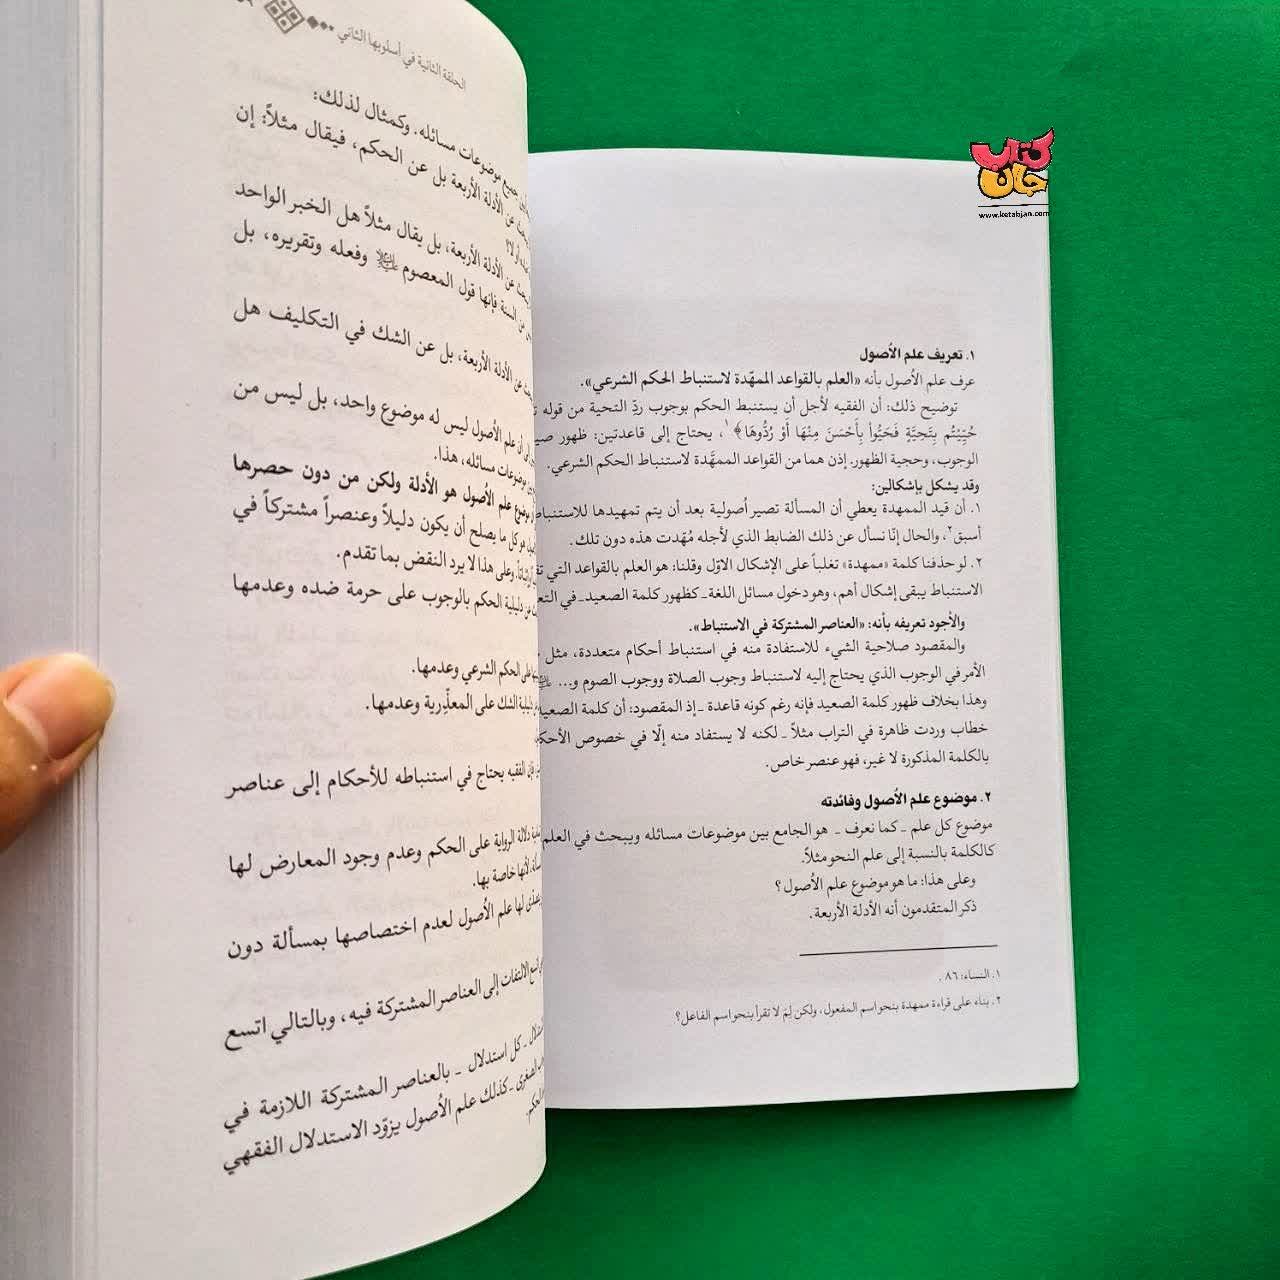 كتاب
جان
www.ketabjan.com
١. تعريف علم الأصول
عرف علم الأصول بأنه «العلم بالقواعد الممهّدة لاستنباط الحكم الشرعي».
توضيح ذلك: أن الفقيه لأجل أن يستنبط الحكم بوجوب ردّ التحية من قوله
حُيِّيْتُم بِتَحِيَّةٍ فَحَيُّواْ بِأَحْسَنَ مِنْهَا أَوْ رُدُّوهَا﴾١، يحتاج إلى قاعدتين: ظهور
الوجوب، وحجية الظهور. إذن هما من القواعد الممهَّدة لاستنباط الحكم الشرعي.
وقد يشكل بإشكالين:
١. أن قيد الممهدة يعطي أن المسألة تصير أصولية بعد أن يتم تمهيدها للاستنباط
أسبق٢، والحال إنّا نسأل عن ذلك الضابط الذي لأجله مُهّدت هذه دون تلك.
٢. لو حذفنا كلمة «ممهدة» تغلباً على الإشكال الاوّل وقلنا: هو العلم بالقواعد التي
الاستنباط يبقى إشكال أهم، وهو دخول مسائل اللغة ـ كظهور كلمة الصعيد ـ في
والأجود تعريفه بأنه: «العناصر المشتركة في الاستنباط».
والمقصود صلاحية الشيء للاستفادة منه في استنباط أحكام متعددة، مثل
الأمر في الوجوب الذي يحتاج إليه لاستنباط وجوب الصلاة ووجوب الصوم و...
وهذا بخلاف ظهور كلمة الصعيد فإنه رغم كونه قاعدة ـ إذ المقصود: أن كلمة
خطاب وردت ظاهرة في التراب مثلاً ـ لكنه لا يستفاد منه إلّا في خصوص
بالكلمة المذكورة لا غير، فهو عنصر خاص.
٢. موضوع علم الأصول وفائدته
موضوع كل علم ـ كما نعرف ـ هو الجامع بين موضوعات مسائله ويبحث في العلم
كالكلمة بالنسبة إلى علم النحو مثلاً.
وعلى هذا: ما هو موضوع علم الأصول؟
ذكر المتقدمون أنه الأدلة الأربعة.
١. النساء: ٨٦.
٢. بناء على قراءة ممهدة بنحو اسم المفعول، ولكن لِمَ لا تقرأ بنحو اسم الفاعل؟
الحلقة الثانية في أسلوبها الثاني
جميع موضوعات مسائله. وكمثال لذلك:
عن الأدلة الأربعة بل عن الحكم، فيقال مثلاً: إن
أو لا؟
عن الأدلة الأربعة، بل يقال مثلاً هل الخبر الواحد
من السنة فإنها قول المعصوم وفعله وتقريره، بل
عن الأدلة الأربعة، بل عن الشك في التكليف هل
أن علم الأصول ليس له موضوع واحد، بل ليس من
موضوعات مسائله، هذا.
موضوع علم الأصول هو الأدلة ولكن من دون حصرها
هو كل ما يصلح أن يكون دليلاً وعنصراً مشتركاً في
وعلى هذا لا يرد النقض بما تقدم.
عن دليلية الحكم بالوجوب على حرمة ضده وعدمها
على الحكم الشرعي وعدمها.
دليلية الشك على المعذّرية وعدمها.
فإن الفقيه يحتاج في استنباطه للأحكام إلى عناصر
دلالة الرواية على الحكم وعدم وجود المعارض لها
لأنها خاصة بها.
لها علم الأصول لعدم اختصاصها بمسألة دون
اتسع الالتفات إلى العناصر المشتركة فيه، وبالتالي اتسع
ـ كل استدلال ـ بالعناصر المشتركة اللازمة في
ـ كذلك علم الأصول يزوّد الاستدلال الفقهي
الحكم.